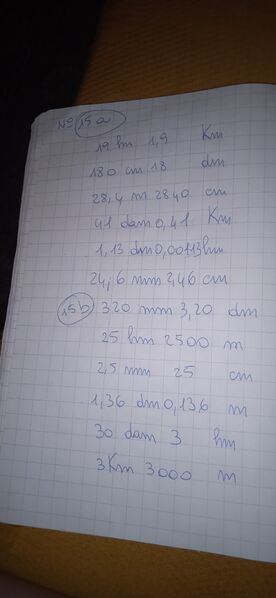 N° 15a
19 hm 1,9 Km
180 cm 18 dm
28,4 m 2840 cm
41 dam 0,41 Km
1,13 dm 0,00113 hm
24,6 mm 2,46 cm
15b 320 mm 3,20 dm
25 hm 2500 m
2,5 mm 25 cm
1,36 dm 0,136 m
30 dam 3 hm
3 Km 3000 m